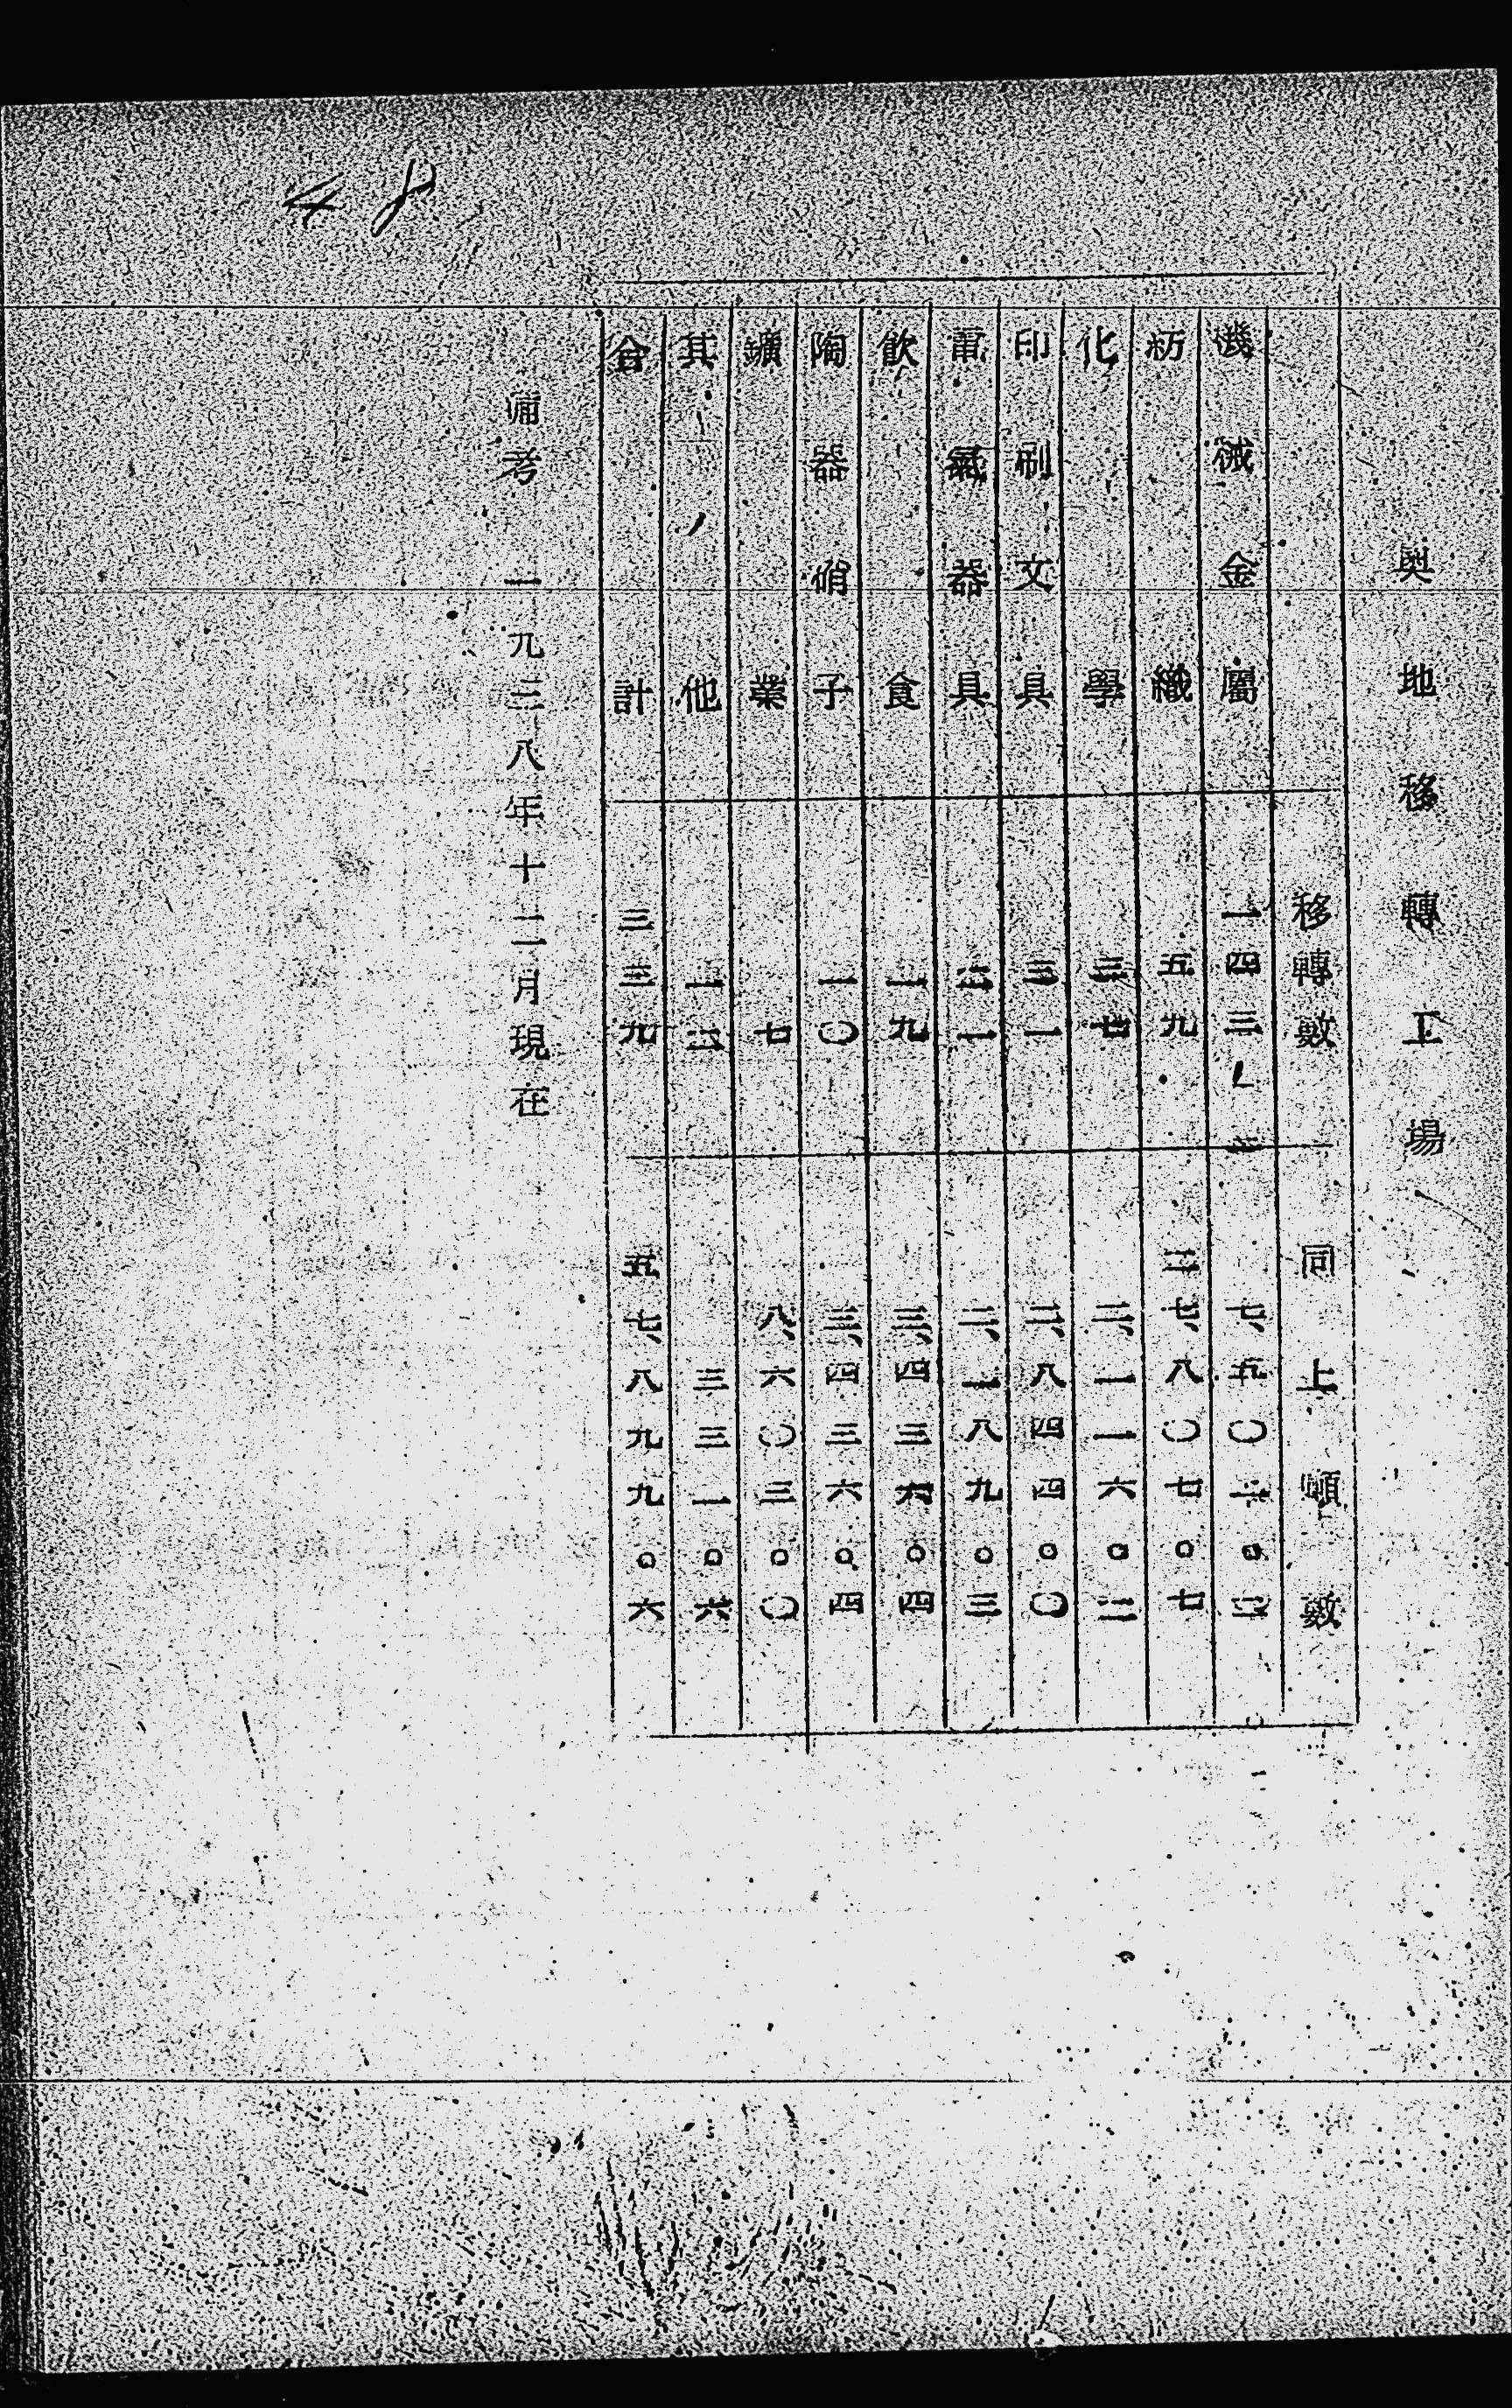 4 8
奥地移轉工場
移轉數 同上噸數
機械金屬 一四三 七、五〇二。四
紡織 五九 二七、八〇七。七
化學 三七 二、一一六。二
印刷文具 三一 二、八四四。〇
電氣器具 二一 二、一八九。三
飲食 一九 三、四三六。四
陶器硝子 一〇 三、四三六。四
鑛業 七 八、六〇三。〇
其ノ他 一二 三三一。六
合計 三三九 五七、八九九。六
備考 一九三八年十二月現在